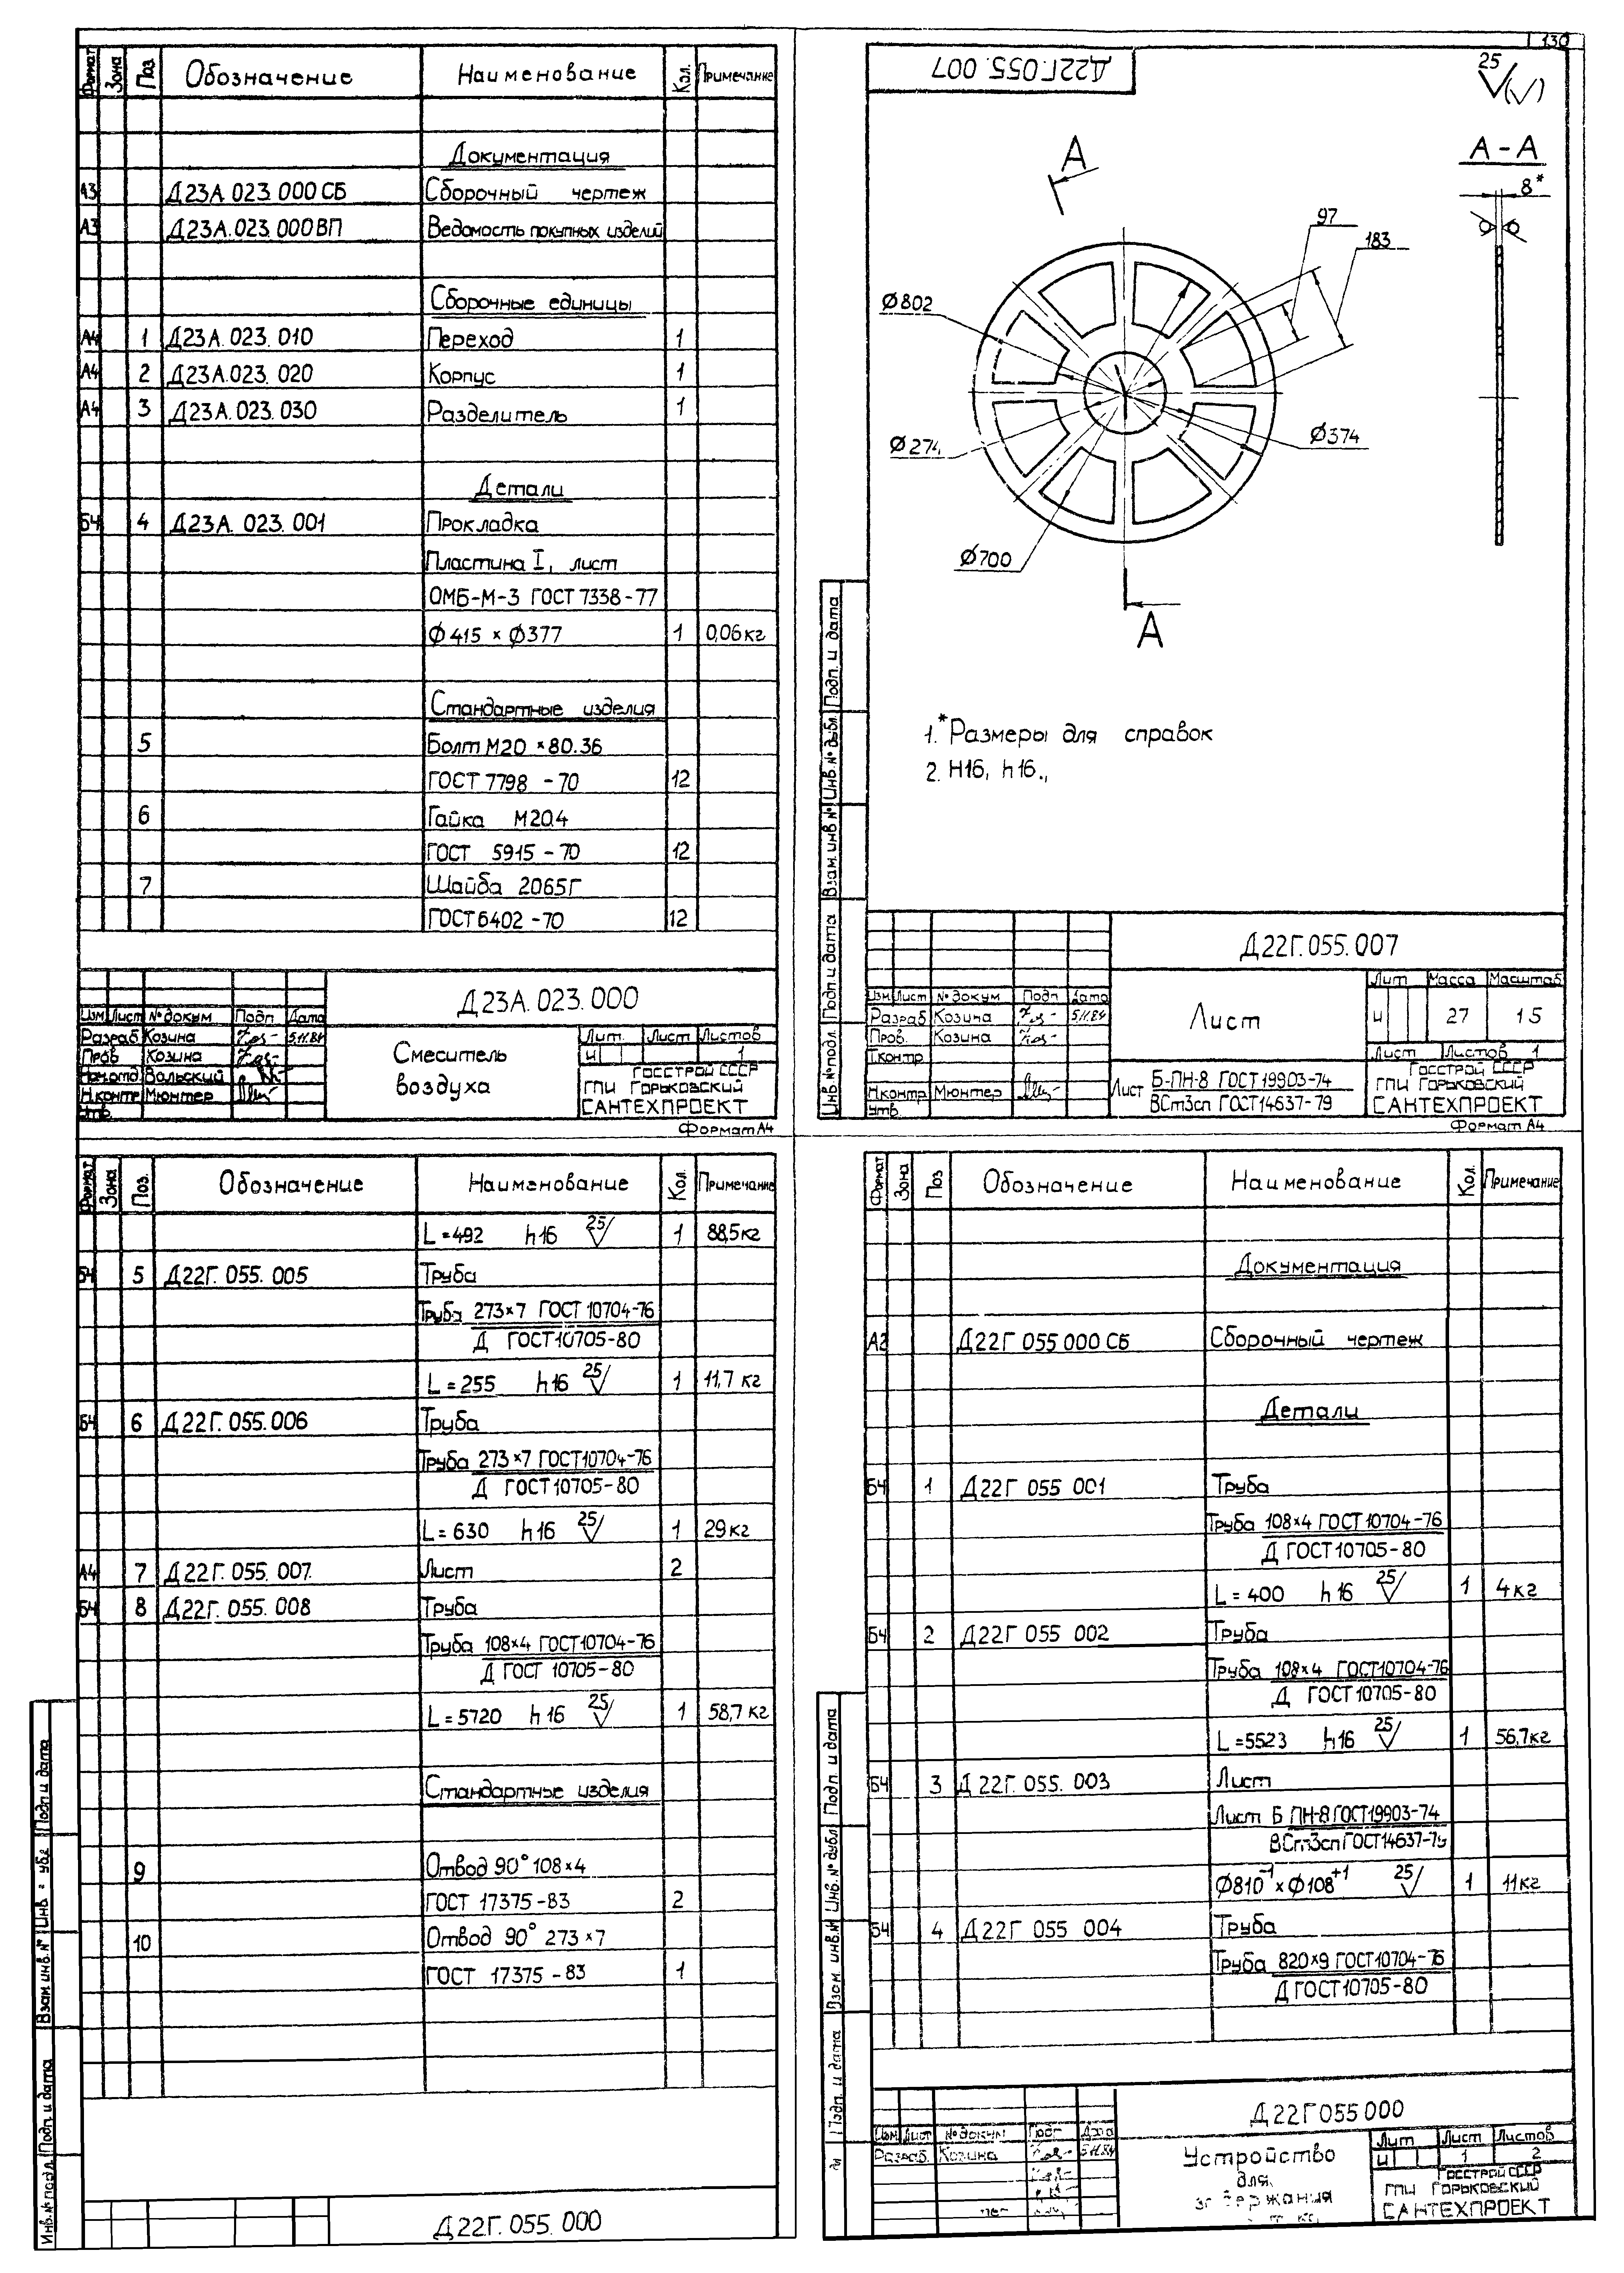 130
Формат
Зона
Поз
Обозначение
Наименование
Кол.
Примечание
Документация
А3 Д23А.023.000 СБ Сборочный чертеж
А3 Д23А.023.000ВП Ведомость покупных изделий
Сборочные единицы
А4 1 Д23А.023.010 Переход 1
А4 2 Д23А.023.020 Корпус 1
А4 3 Д23А.023.030 Разделитель 1
Детали
Б4 4 Д23А.023.001 Прокладка
Пластина I, лист
ОМБ-М-3 ГОСТ 7338-77
Ф415 × Ф377 1 0,06кг
Стандартные изделия
5 Болт М20×80.36
ГОСТ 7798-70 12
6 Гайка М20.4
ГОСТ 5915-70 12
7 Шайба 2065Г
ГОСТ 6402-70 12
Д23А.023.000
Изм Лист № докум Подп Дата
Разраб Козина 5.11.84
Пров Козина
Нач.отд Вольский
Н.контр Мюнтер
Утв.
Смеситель
воздуха
Лит. Лист Листов
И 1
Госстрой СССР
ГПИ Горьковский
САНТЕХПРОЕКТ
Формат А4
Д22Г.055.007
25
(√)
А
А-А
8*
97
183
Ф802
Ф274
Ф374
Ф700
А
1.* Размеры для справок
2. Н16, h16.,
Подп. и дата
Инв. № дубл.
Взам. инв №
Подп. и дата
Инв. № подл.
Д22Г.055.007
Изм Лист № докум Подп Дата
Разраб Козина 5.11.84
Пров. Козина
Т.контр
Н.контр Мюнтер
Утв.
Лист
Лит Масса Масштаб
И 27 1 5
Лист Листов 1
Лист Б-ПН-8 ГОСТ 19903-74
ВСт3сп ГОСТ14637-79
Госстрой СССР
ГПИ Горьковский
САНТЕХПРОЕКТ
Формат А4
Формат
Зона
Поз.
Обозначение
Наименование
Кол.
Примечание
L=492 h16 25 1 88,5кг
Б4 5 Д22Г.055.005 Труба
Труба 273×7 ГОСТ 10704-76
Д ГОСТ10705-80
L=255 h16 25 1 11,7 кг
Б4 6 Д22Г.055.006 Труба
Труба 273×7 ГОСТ10704-76
Д ГОСТ10705-80
L=630 h16 25 1 29кг
А4 7 Д22Г.055.007. Лист 2
Б4 8 Д22Г.055.008 Труба
Труба 108×4 ГОСТ10704-76
Д ГОСТ 10705-80
L=5720 h16 25 1 58,7 кг
Стандартные изделия
9 Отвод 90° 108×4
ГОСТ 17375-83 2
10 Отвод 90° 273×7
ГОСТ 17375-83 1
Подп и дата
Взам. инв. №
Подп. и дата
Инв. № подл
Д22Г.055.000
Формат
Зона
Поз
Обозначение
Наименование
Кол.
Примечание
Документация
А2 Д22Г 055 000 СБ Сборочный чертеж
Детали
Б4 1 Д22Г 055 001 Труба
Труба 108×4 ГОСТ 10704-76
Д ГОСТ10705-80
L=400 h16 25 1 4кг
Б4 2 Д22Г 055 002 Труба
Труба 108×4 ГОСТ10704-76
Д ГОСТ10705-80
L=5523 h16 25 1 56,7кг
Б4 3 Д22Г.055.003 Лист
Лист Б ПН-8 ГОСТ19903-74
ВСт3сп ГОСТ14637-79
Ф810⁻¹×Ф108⁺¹ 25 1 11кг
Б4 4 Д22Г 055 004 Труба
Труба 820×9 ГОСТ10704-76
Д ГОСТ10705-80
Подп. и дата
Инв. № дубл
Взам. инв.№
Подп. и дата
Д22Г055000
Изм Лист № докум Подп Дата
Разраб. Козина 5.11.84
Устройство
для
Лит Лист Листов
И 1 2
Госстрой СССР
ГПИ Горьковский
САНТЕХПРОЕКТ